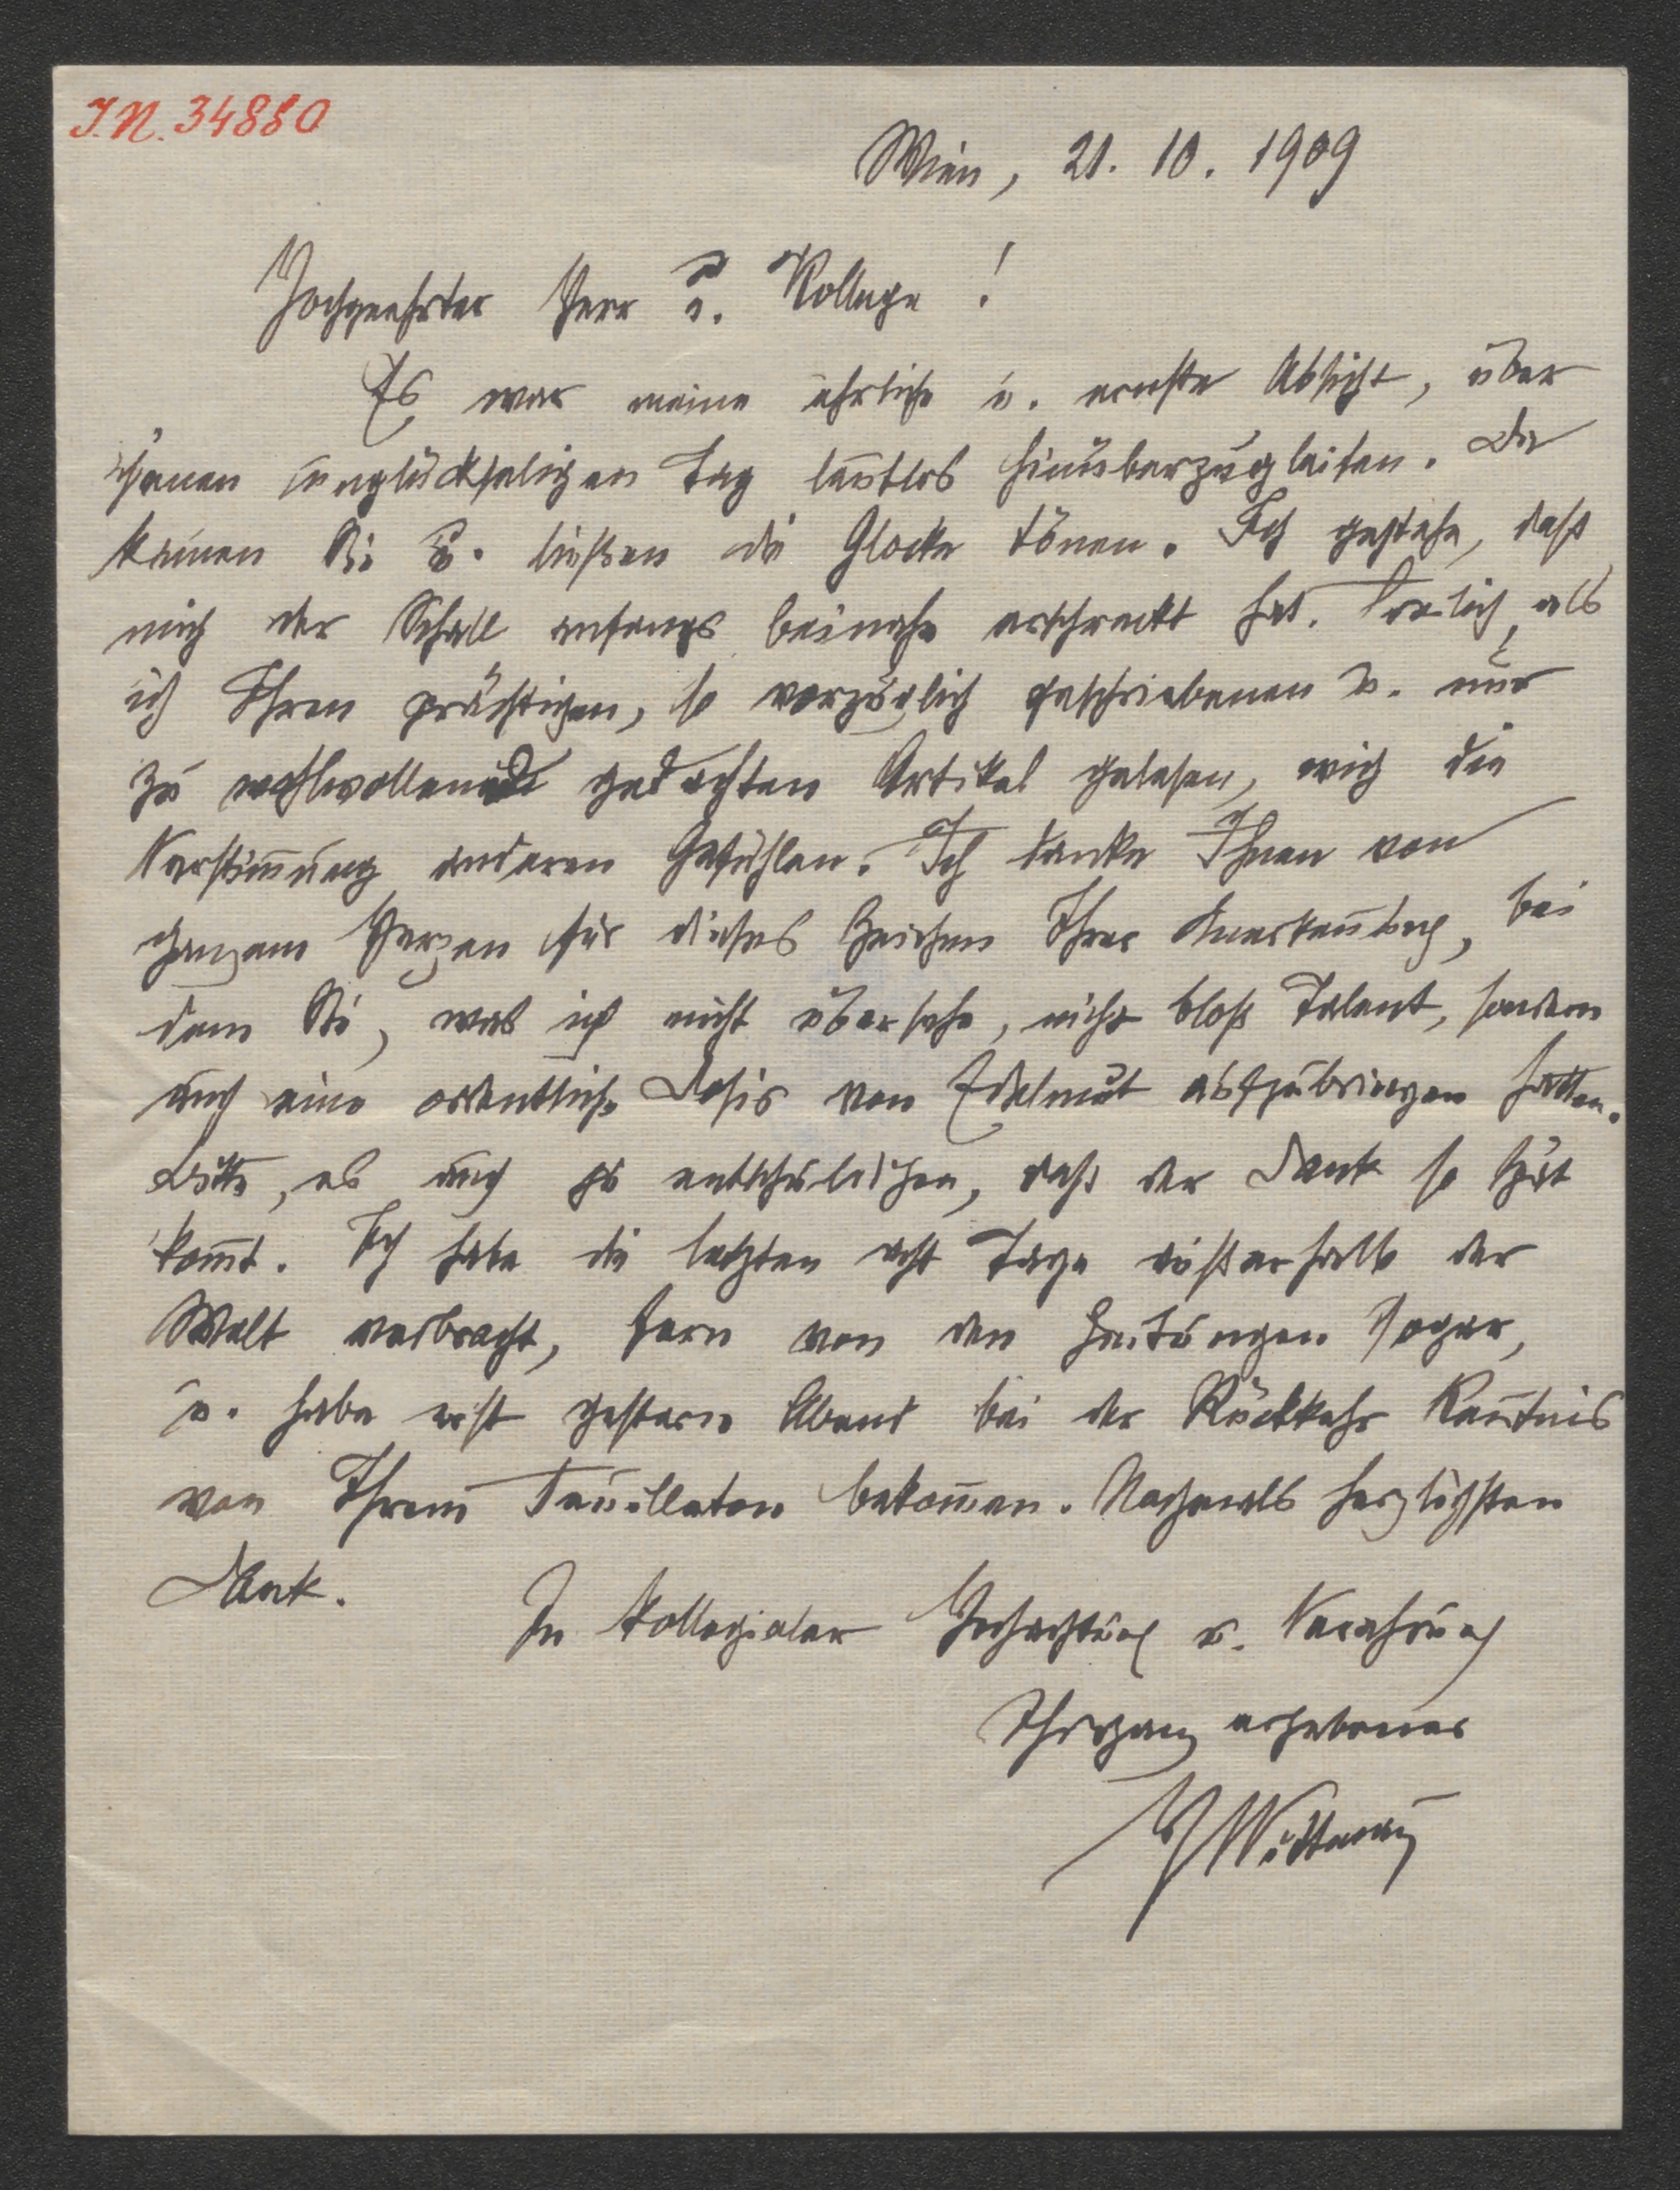 I.N. 34880
Wien, 21. 10. 1909
Hochgeehrter Herr u. Kollege!
Es war meine ehrliche u. ernste Absicht, über
jenen unglückseligen Tag lautlos hinüberzugleiten. Da
kamen Sie u. ließen die Glocke tönen. Ich gestehe, daß
mich der Schall anfangs beinahe erschreckt hat. Freilich, als
ich Ihren prächtigen, so vorzüglich geschriebenen u. nur
zu wohlwollend gedachten Artikel gelesen, wich die
Verstimmung anderen Gefühlen. Ich danke Ihnen von
ganzem Herzen für dieses Zeichen Ihrer Anerkennung, bei
dem Sie, was ich nicht übersehe, nicht bloß Talent, sondern
auch eine ordentliche Dosis von Edelmut aufzubringen hatten.
Bitte, es auch zu entschuldigen, daß der Dank so spät
kommt. Ich habe die letzten acht Tage außerhalb der
Welt verbracht, fern von den Zeitungen sogar,
u. habe erst gestern Abend bei der Rückkehr Kenntnis
von Ihrem Feuilleton bekommen. Nochmals herzlichsten
Dank.
In kollegialer Hochachtung u. Verehrung
Ihr ganz ergebener
Wittmann